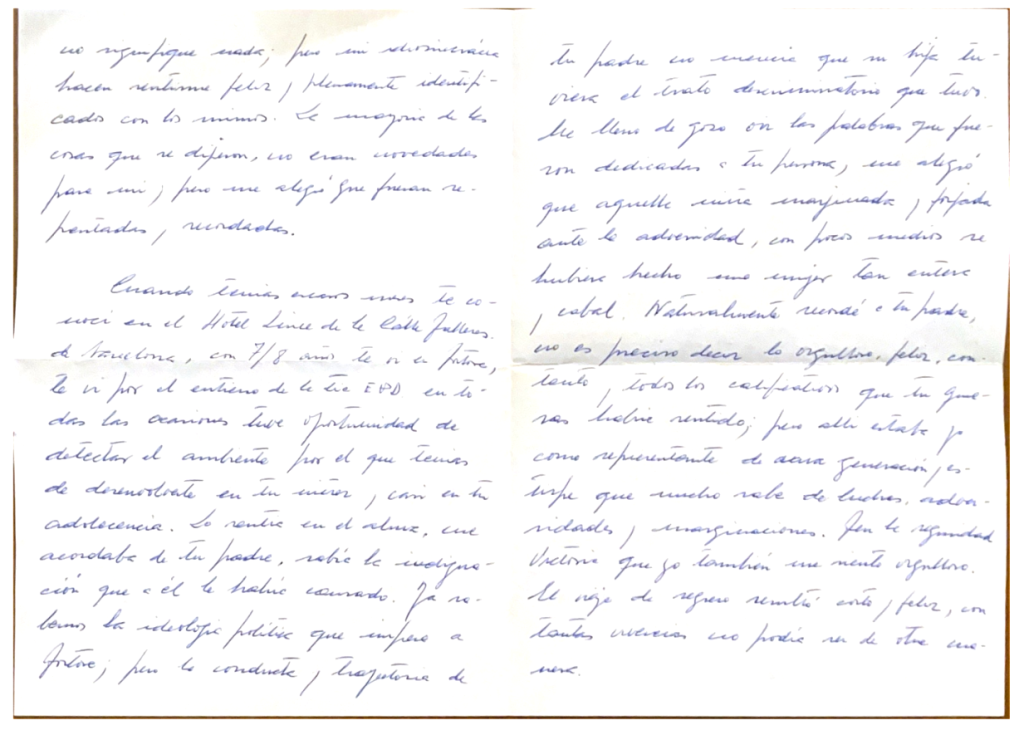 no signifique nada; pero mi idiosincrasia
hacen sentirme feliz y plenamente identifi-
cados con los mismos. La mayoria de las
cosas que se dijeron, no eran novedades
para mi; pero me alegró que fueran re-
y recordadas.
Cuando tenias meses te co-
noci en el Hotel Lince de la Calle Talleres.
de Barcelona, con 7/8 años te vi en
te vi por el entierro de la tia en to-
das las ocasiones tuve oportunidad de
detectar el ambiente por el que tenias
de desenvolverte en tu niñez y casi en tu
adolecencia. Lo sentia en el alma, me
acordaba de tu padre, sabia la indigna-
ción que a él le habria causado. Ya sa-
bemos la ideologia politica que impera a
pero la conducta y trayectoria de
tu padre no merecia que su hija tu-
viera el trato descriminatorio que tuvo.
Me lleno de gozo oir las palabras que fue-
ron dedicadas a tu persona, me alegró
que aquella niña marginada y forjada
ante la adversidad, con pocos medios se
hubiera hecho una mujer tan entera
y cabal. Naturalmente recordé a tu padre,
no es preciso decir lo orgulloso, feliz, con-
tento y todos los calificativos que tu quie-
ras habria sentido; pero alli estaba yo
como representante de generación y es-
tirpe que mucho sabe de luchas, adver-
sidades y marginaciones. Ten la seguridad
Victoria que yo también me siento orgulloso.
El viaje de regreso resultó corto y feliz, con
tantas vivencias no podia ser de otra ma-
nera.